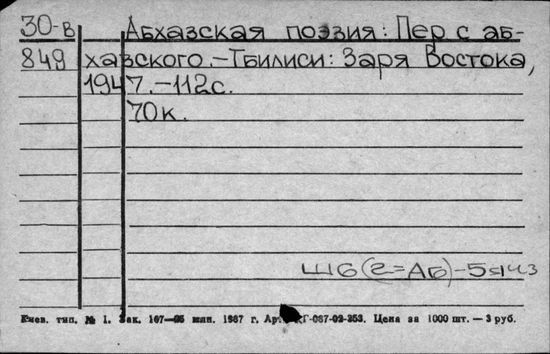 30-в Абхазская поэзия: Пер с аб-
849 хазского.-Тбилиси: Заря Востока,
1947.-112с.
70к.
Ш6(2=Аб)-5я43
Киев. тип. № 1. Зак. 167—95 млн. 1987 г. КГ-087-02-353. Цена за 1000 шт. — 3 руб.